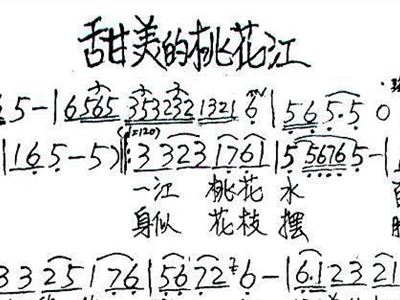 甜美的桃花江
5 - | 6 565 353232 1321 6 | 5 6 5 . 5 0
| 1 6 5 - 5) ‖: 3 323 1761 | 5 5676 5 - |
(♩=120)
一江 桃花 水
身似 花枝 摆
3 3 2 5 1 7 6 | 5 6 7 2 7 6 - | 6 . 1 2 3 2 1